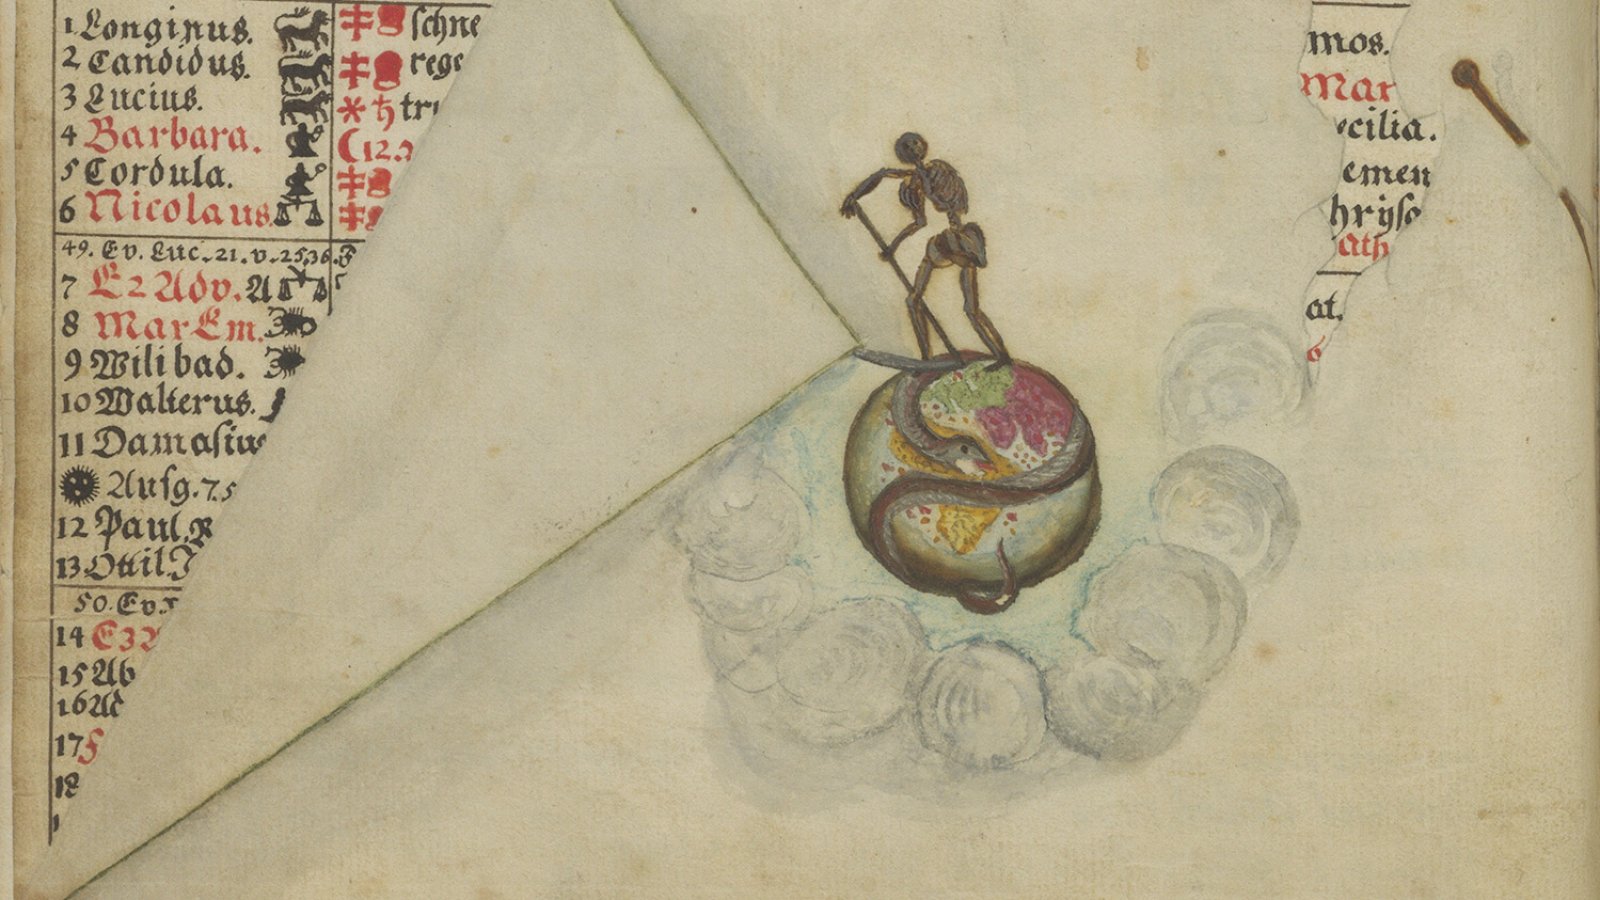 1 Longinus. schne
2 Candidus. rege
3 Lucius. tr
4 Barbara. 12.
5 Cordula.
6 Nicolaus.
49. Ev. Luc. 21. v. 25. 36. F
7 E 2 Adv. A
8 Mar Em.
9 Wilibad.
10 Walterus.
11 Damasius
Aufg. 7. 5
12 Paul. B
13 Ottil. J
50. Ev.
14 E 3
15 Ab
16 Ad
17
18
mos.
Mar
ecilia.
emen
hryso
ath
at.
6